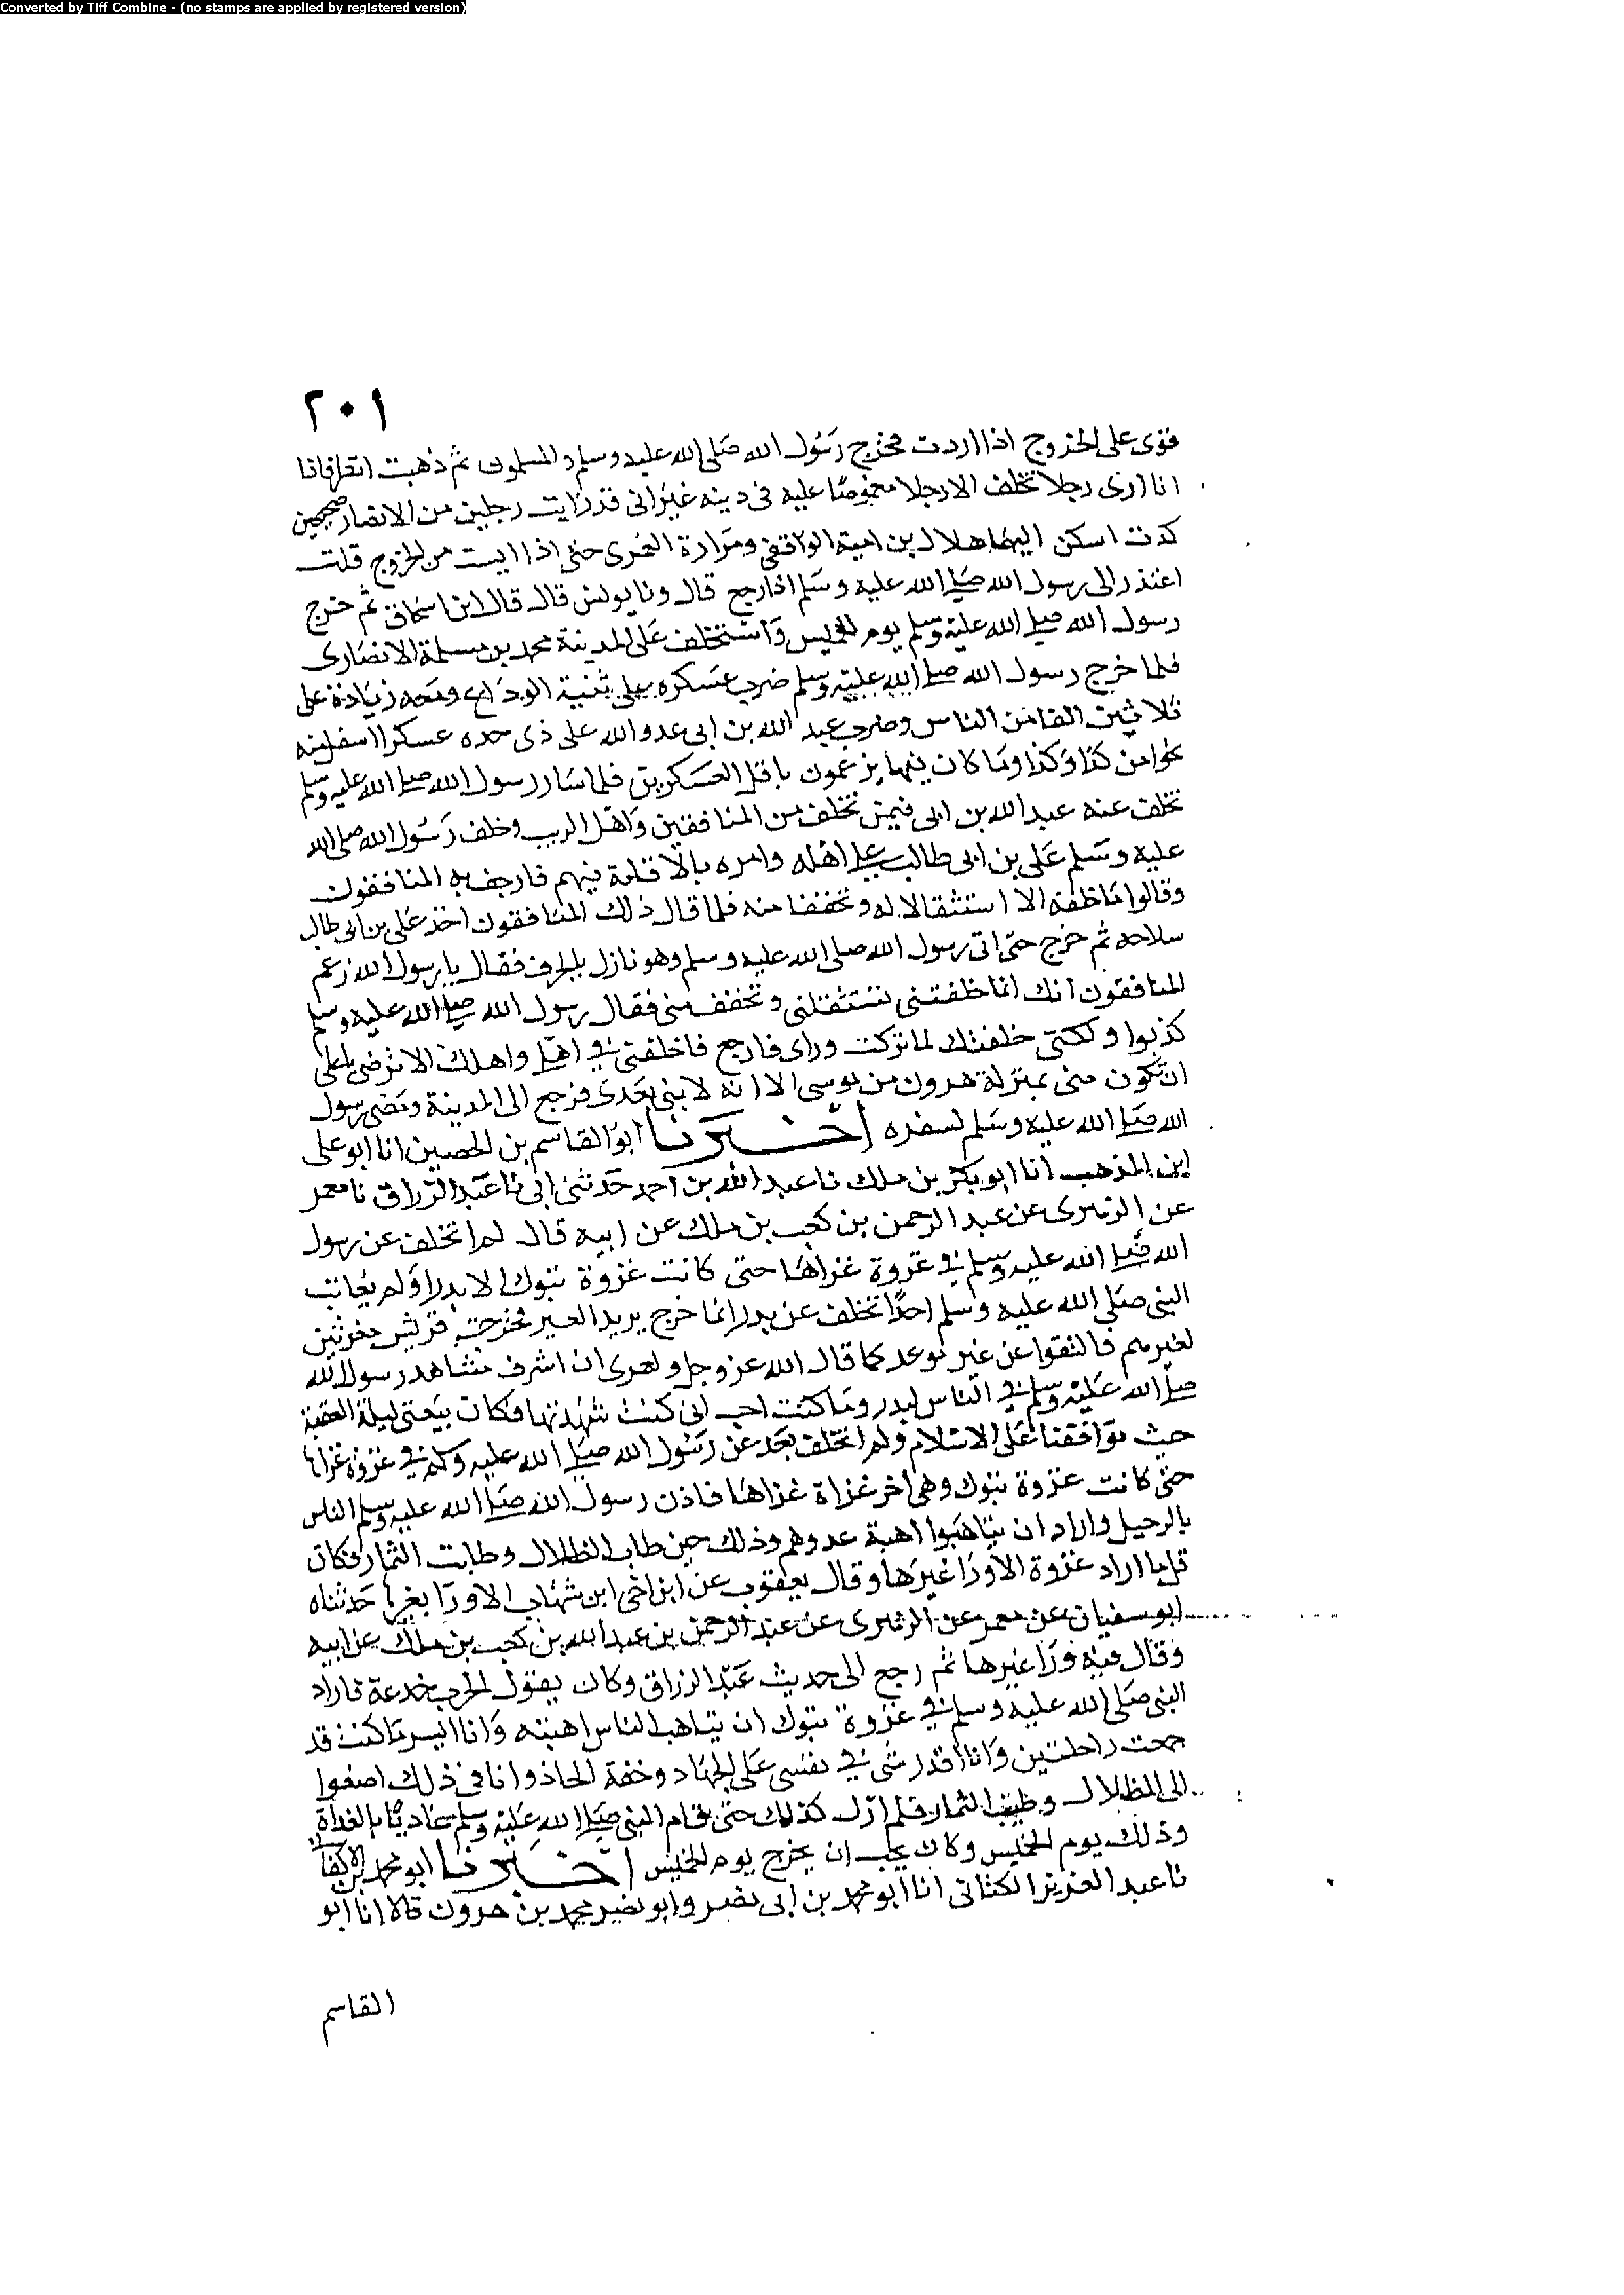 Converted by Tiff Combine - (no stamps are applied by registered version)
٢٠١
قوى على الخروج اذا اردت مخرج رسول الله صلى الله عليه وسلم والمسلمون ثم ذهبت
انا ارى رجلا تخلف الا رجلا مغموصا عليه فى دينه غير انى قد رايت رجلين من الانصار صحيحين
كدت اسكن اليهما هلال بن امية الواقفى ومرارة العمرى حتى اذا ايست من الخروج قلت
اعتذر الى رسول الله صلى الله عليه وسلم اذا رجع قال ونا يونس قال قال ابن اسحاق ثم خرج
رسول الله صلى الله عليه وسلم يوم الخميس واستخلف على المدينة محمد بن مسلمة الانصارى
فلما خرج رسول الله صلى الله عليه وسلم ضرب عسكره على ثنية الوداع ومعه زيادة على
ثلاثين الفا من الناس وضرب عبد الله بن ابى عدو الله على ذى حده عسكرا اسفل منه
نحوا من كذا وكذا وما كان فيما يزعمون باقل العسكرين فلما سار رسول الله صلى الله عليه وسلم
تخلف عنه عبد الله بن ابى فيمن تخلف من المنافقين واهل الريب وخلف رسول الله صلى الله
عليه وسلم على بن ابى طالب على اهله وامره بالاقامة فيهم فارجف به المنافقون
وقالوا ما خلفه الا استثقالا له وتخففا منه فلما قال ذلك المنافقون اخذ على بن ابى طالب
سلاحه ثم خرج حتى اتى رسول الله صلى الله عليه وسلم وهو نازل بالجرف فقال يا رسول الله زعم
المنافقون انك انما خلفتنى تستثقلنى وتخفف منى فقال رسول الله صلى الله عليه وسلم
كذبوا ولكنى خلفتك لما تركت وراى فارجع فاخلفنى في اهلي واهلك الا ترضى يا على
ان تكون منى بمنزلة هرون من موسى الا انه لا نبى بعدى فرجع الى المدينة ومضى رسول
الله صلى الله عليه وسلم لسفره اخبرنا ابو القاسم بن الحصين انا ابو على
ابن المذهب انا ابو بكر بن ملك نا عبد الله بن احمد حدثنى ابى نا عبد الرزاق نا معمر
عن الزهرى عن عبد الرحمن بن كعب بن ملك عن ابيه قال لم اتخلف عن رسول
الله صلى الله عليه وسلم في غزوة غزاها حتى كانت غزوة تبوك الا بدرا ولم يعاتب
النبى صلى الله عليه وسلم احدا تخلف عن بدر انما خرج يريد العير فخرجت قريش مغوثين
لعيرهم فالتقوا عن غير موعد كما قال الله عز وجل ولعمرى ان اشرف مشاهد رسول الله
صلى الله عليه وسلم في الناس لبدر وما كنت احب انى كنت شهدتها فكان بيعتى ليلة العقبة
حيث توافقنا على الاسلام ولم اتخلف بعد عن رسول الله صلى الله عليه وسلم في غزوة غزاها
حتى كانت غزوة تبوك وهى اخر غزاة غزاها فاذن رسول الله صلى الله عليه وسلم الناس
بالرحيل واراد ان يتاهبوا اهبة عدوهم وذلك حين طاب الظلال وطابت الثمار فكان
قل ما اراد غزوة الا ورا غيرها وقال يعقوب عن ابن اخى ابن شهاب الا ورا بغيرها حدثناه
ابو سفيان عن معمر عن الزهرى عن عبد الرحمن بن عبد الله بن كعب بن ملك عن ابيه
وقال فيه ورا غيرها ثم رجع الى حديث عبد الرزاق وكان يقول الحرب خدعة فاراد
النبى صلى الله عليه وسلم في غزوة تبوك ان يتاهب الناس اهبته وانا ايسر ما كنت قد
جمعت راحلتين وانا اقدر شى في نفسى على الجهاد وخفة الحاذ وانا فى ذلك اصغوا
الى الظلال وطيب الثمار فلم ازل كذلك حتى قام النبى صلى الله عليه وسلم غاديا بالغداة
وذلك يوم الخميس وكان يحب ان يخرج يوم الخميس اخبرنا ابو محمد بن الاكفانى
نا عبد العزيز الكتانى انا ابو محمد بن ابى نصر وابو نصر محمد بن هرون قالا انا ابو
القاسم